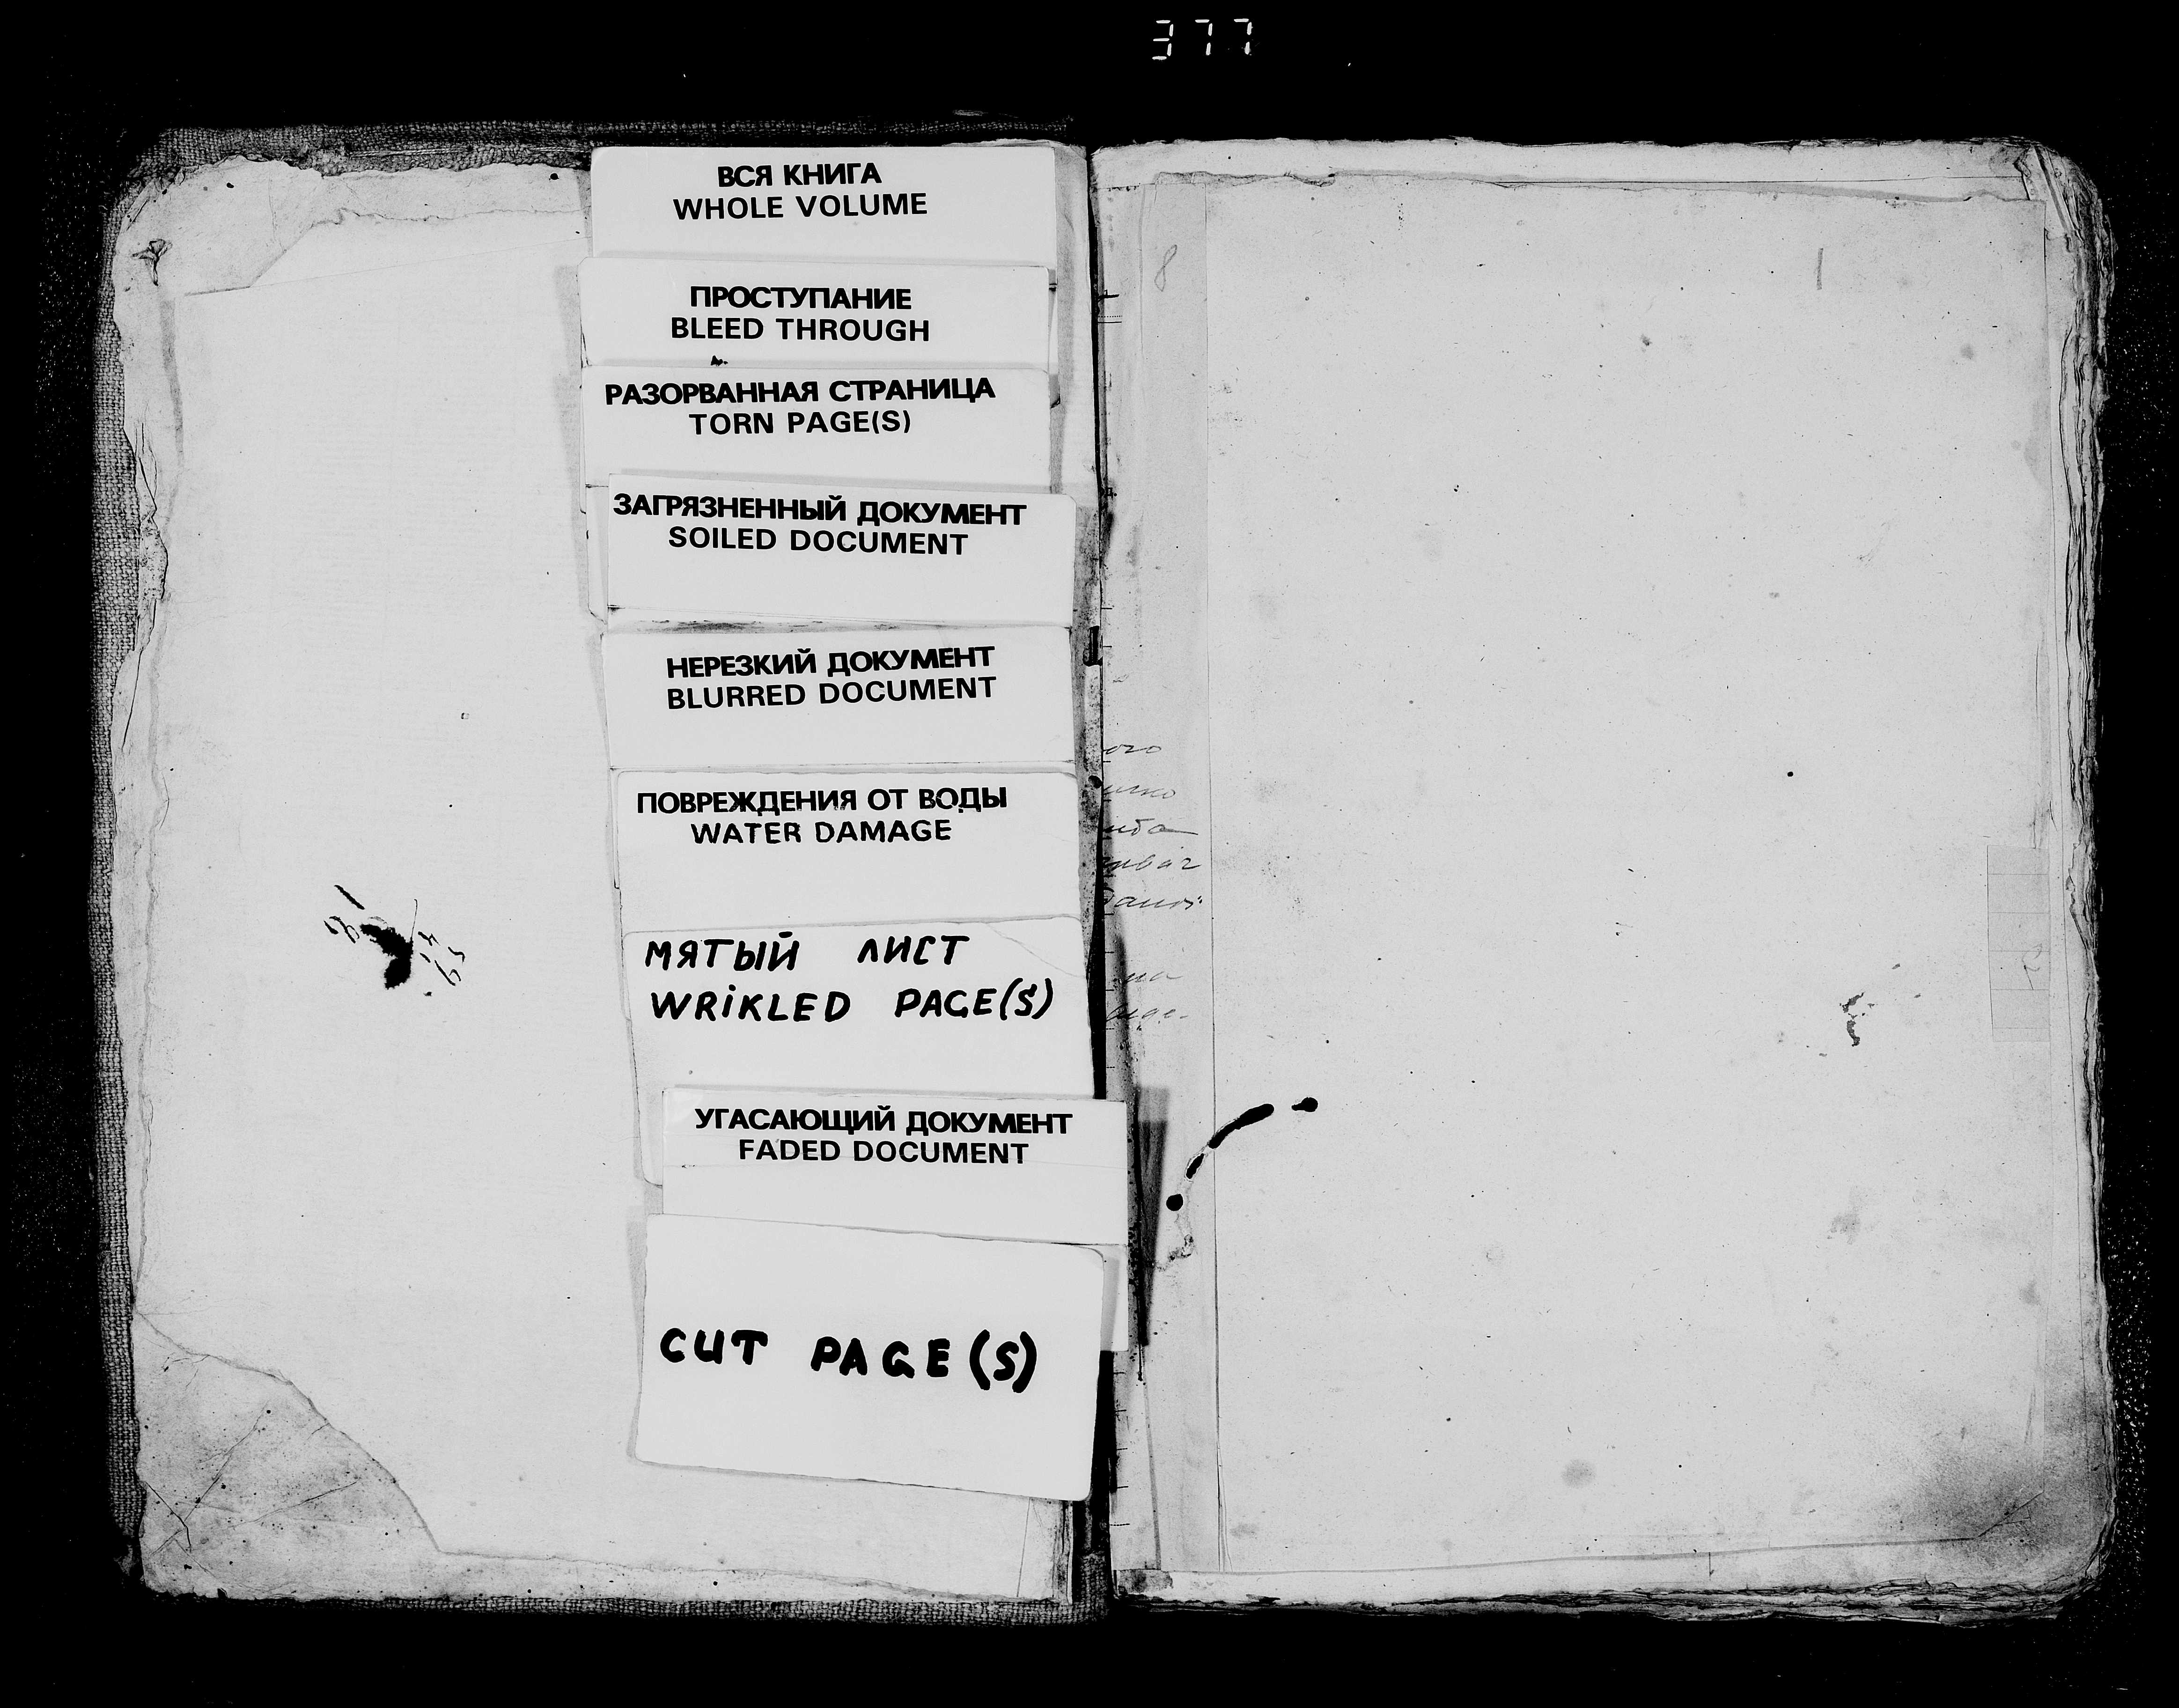 377
ВСЯ КНИГА
WHOLE VOLUME
ПРОСТУПАНИЕ
BLEED THROUGH
РАЗОРВАННАЯ СТРАНИЦА
TORN PAGE(S)
ЗАГРЯЗНЕННЫЙ ДОКУМЕНТ
SOILED DOCUMENT
НЕРЕЗКИЙ ДОКУМЕНТ
BLURRED DOCUMENT
ПОВРЕЖДЕНИЯ ОТ ВОДЫ
WATER DAMAGE
МЯТЫЙ ЛИСТ
WRIKLED PAGE(S)
УГАСАЮЩИЙ ДОКУМЕНТ
FADED DOCUMENT
CUT PAGE(S)
8
1